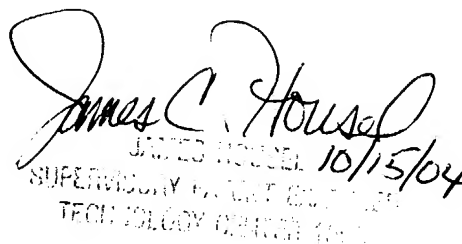 James C. Housel
JAMES HOUSEL 10/15/04
SUPERVISORY PATENT EXAMINER
TECHNOLOGY CENTER